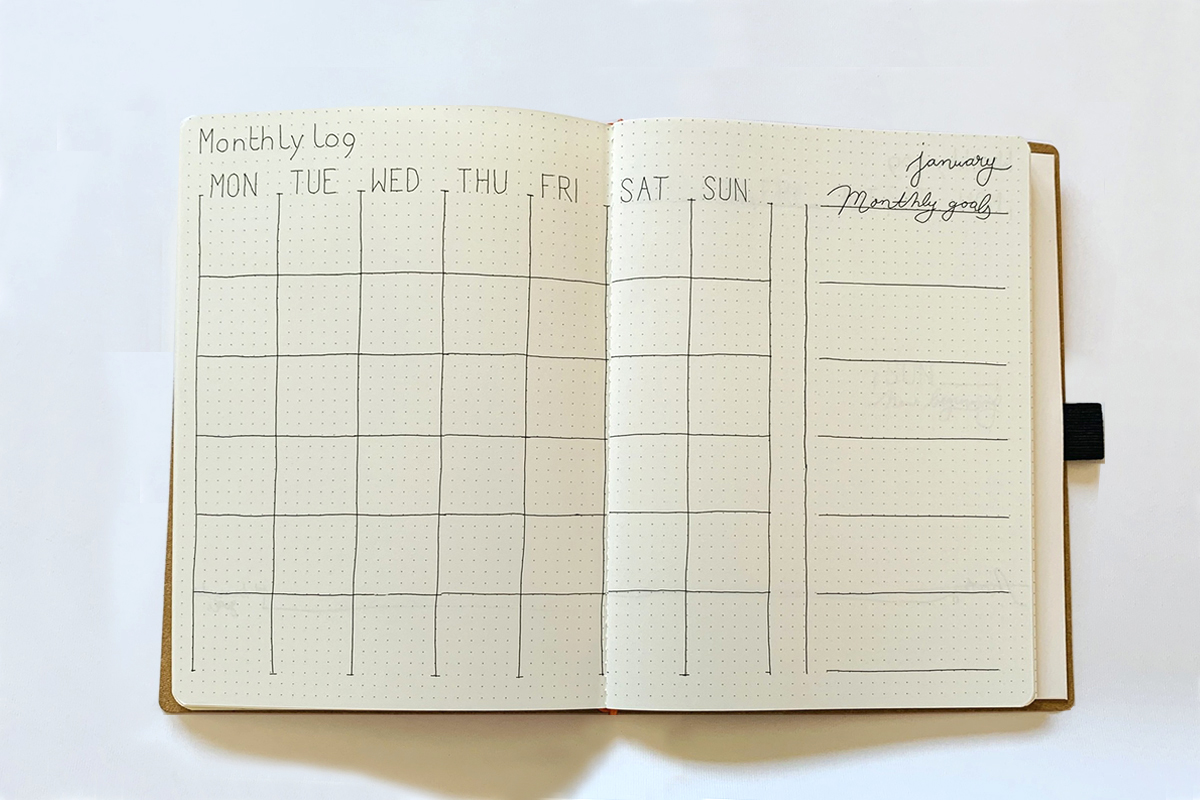 Monthly log
MON TUE WED THU FRI SAT SUN
january
Monthly goals